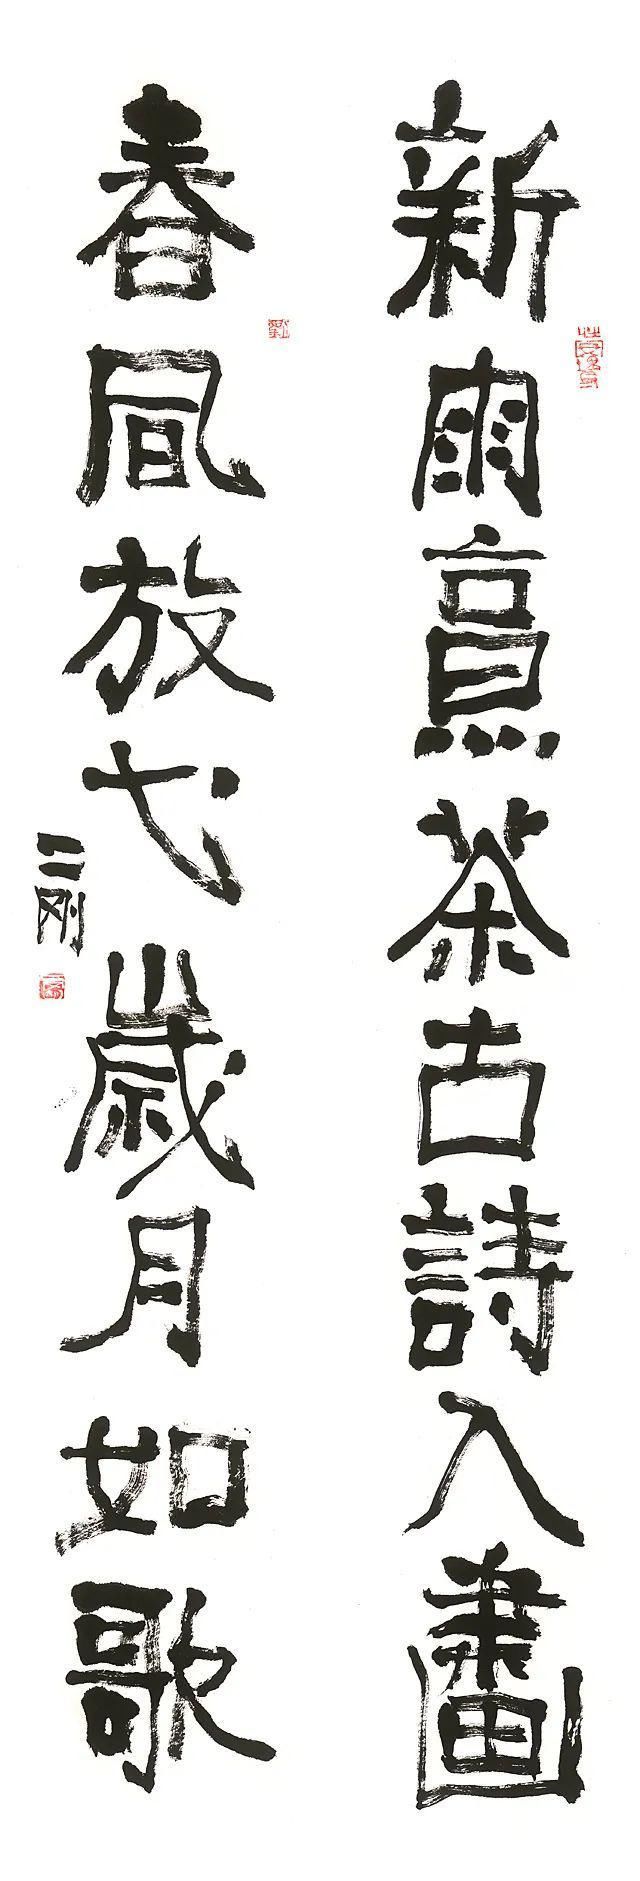 新雨烹茶古詩入畫
春風放弋歲月如歌
二刚